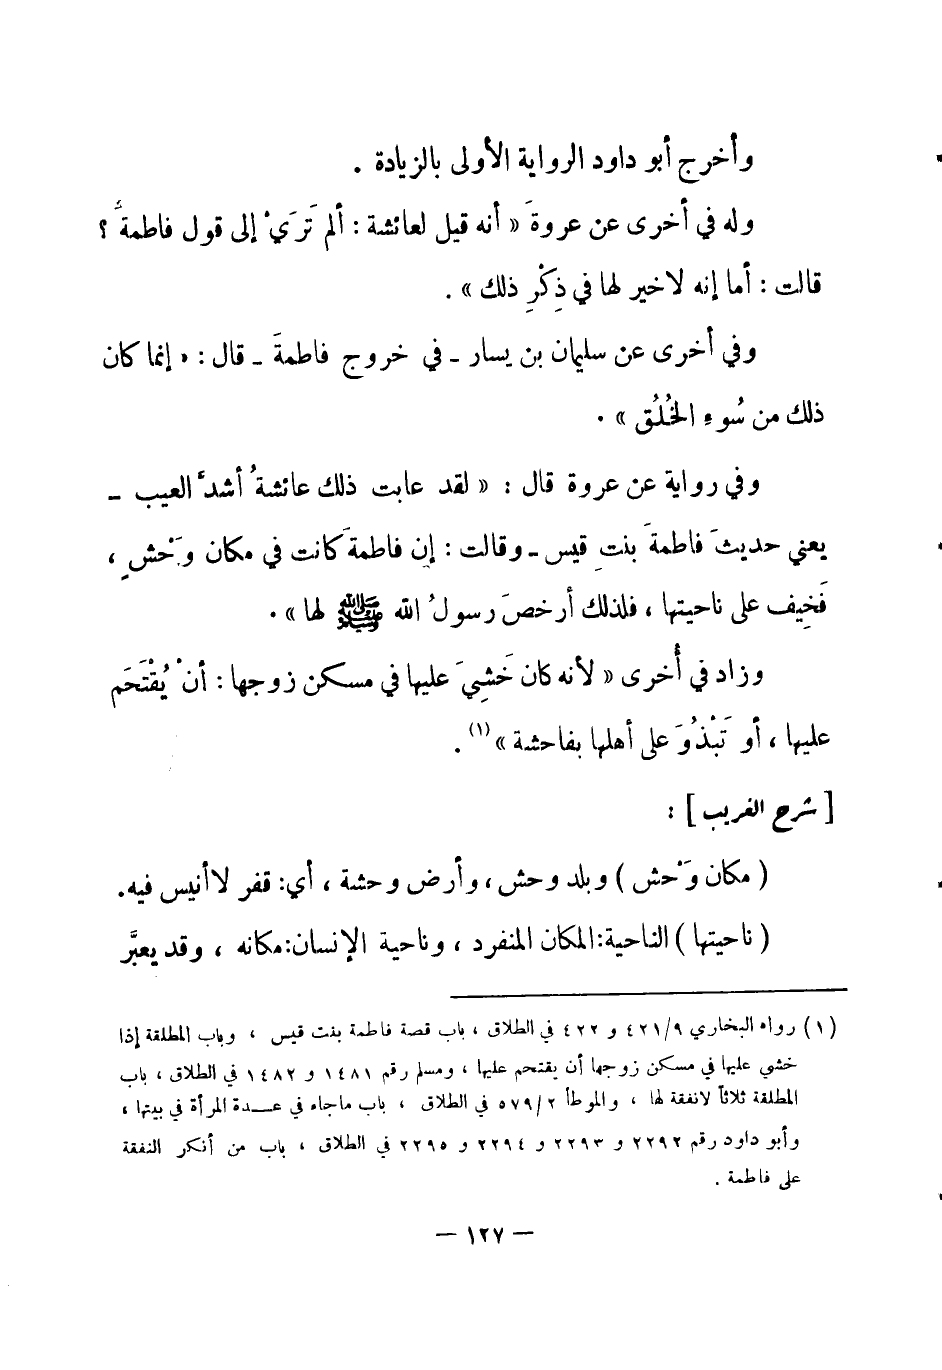 وأخرج أبو داود الرواية الأولى بالزيادة .
وله في أخرى عن عروةَ « أنه قيل لعائشة : ألم تَرَيْ إلى قول فاطمةُ ؟
قالت : أما إنه لاخير لها في ذِكْرِ ذلك » .
وفي أخرى عن سليمان بن يسار ـ في خروج فاطمةَ ـ قال : « إنما كان
ذلك من سُوءِ الخُلُق » .
وفي رواية عن عروة قال : « لقد عابت ذلك عائشةُ أشدَّ العيب ـ
يعني حديثَ فاطمةَ بنتِ قيس ـ وقالت : إن فاطمةَ كانت في مكان وَحْشٍ ،
فَخِيف على ناحيتها ، فلذلك أرخصَ رسولُ الله ﷺ لها » .
وزاد في أُخرى « لأنه كان خَشِيَ عليها في مسكن زوجها : أنْ يُقْتَحَم
عليها ، أو تَبْذُوَ على أهلها بفاحشة » (١) .
[ شرح الغريب ] :
( مكان وَحْش ) وبلد وحش ، وأرض وحشة ، أي: قفر لاأنيس فيه.
( ناحيتها ) الناحية:المكان المنفرد ، وناحية الإنسان:مكانه ، وقد يعبَّر
(١) رواه البخاري ٤٢١/٩ و ٤٢٢ في الطلاق ، باب قصة فاطمة بنت قيس ، وباب المطلقة إذا
خشي عليها في مسكن زوجها أن يقتحم عليها ، ومسلم رقم ١٤٨١ و ١٤٨٢ في الطلاق ، باب
المطلقة ثلاثاً لانفقة لها ، والموطأ ٥٧٩/٢ في الطلاق ، باب ماجاء في عـــدة المرأة في بيتها ،
وأبو داود رقم ٢٢٩٢ و ٢٢٩٣ و ٢٢٩٤ و ٢٢٩٥ في الطلاق ، باب من أنكر النفقة
على فاطمة .
— ١٢٧ —